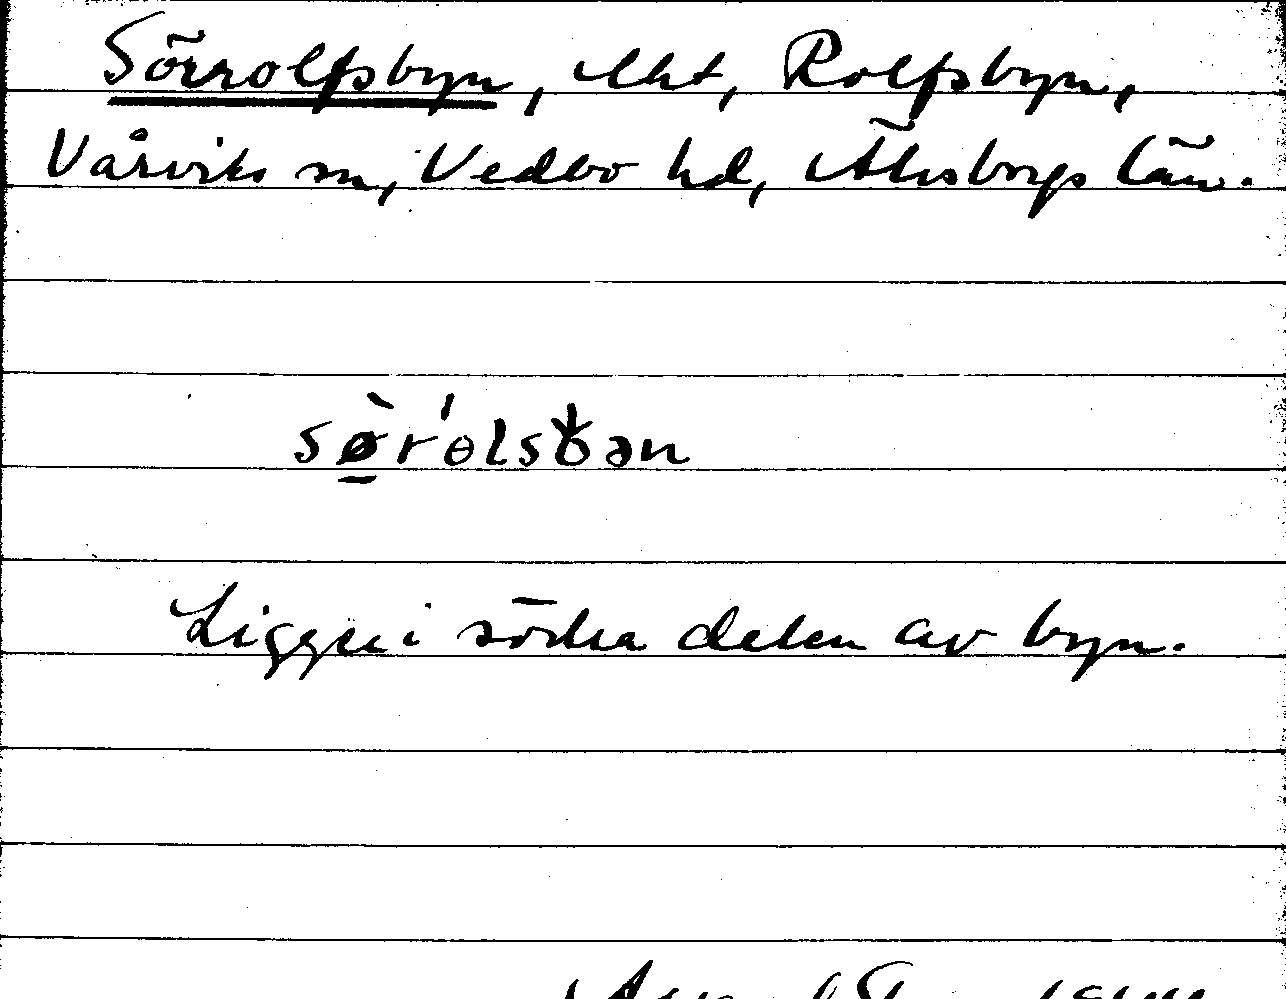 Sörrolfsbyn, lht, Rolfsbyn,
Vårviks sn, Vedbo hd, Älvsborgs län.
sø̱̀rˈɵlsbən
Ligger i södra delen av byn.